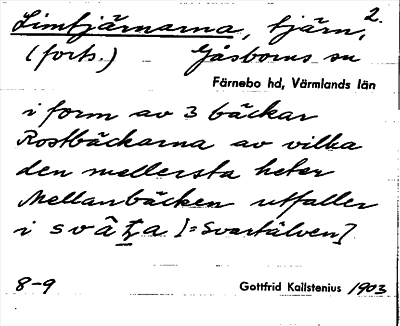 2.
Limtjärnarna, tjärn,
(forts.) Gåsborns sn
Färnebo hd, Värmlands län
i form av 3 bäckar
Rostbäckarna av vilka
den mellersta heter
Mellanbäcken utfaller
i svâţa [=Svartälven]
8-9 Gottfrid Kallstenius 1903